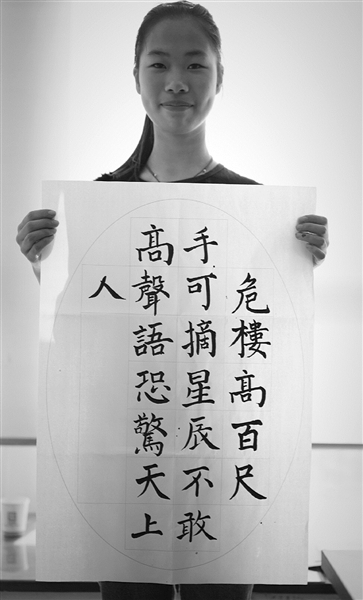 危樓高百尺
手可摘星辰不敢
高聲語恐驚天上
人